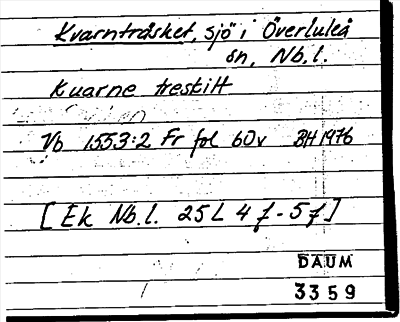 Kvarnträsket, sjö i Överluleå
sn, Nb.l.
Kuarne treskitt
Vb 1553:2 Fr fol 60v BH 1976
[Ek Nb.l. 25 L 4 f - 5 f]
DAUM
3359